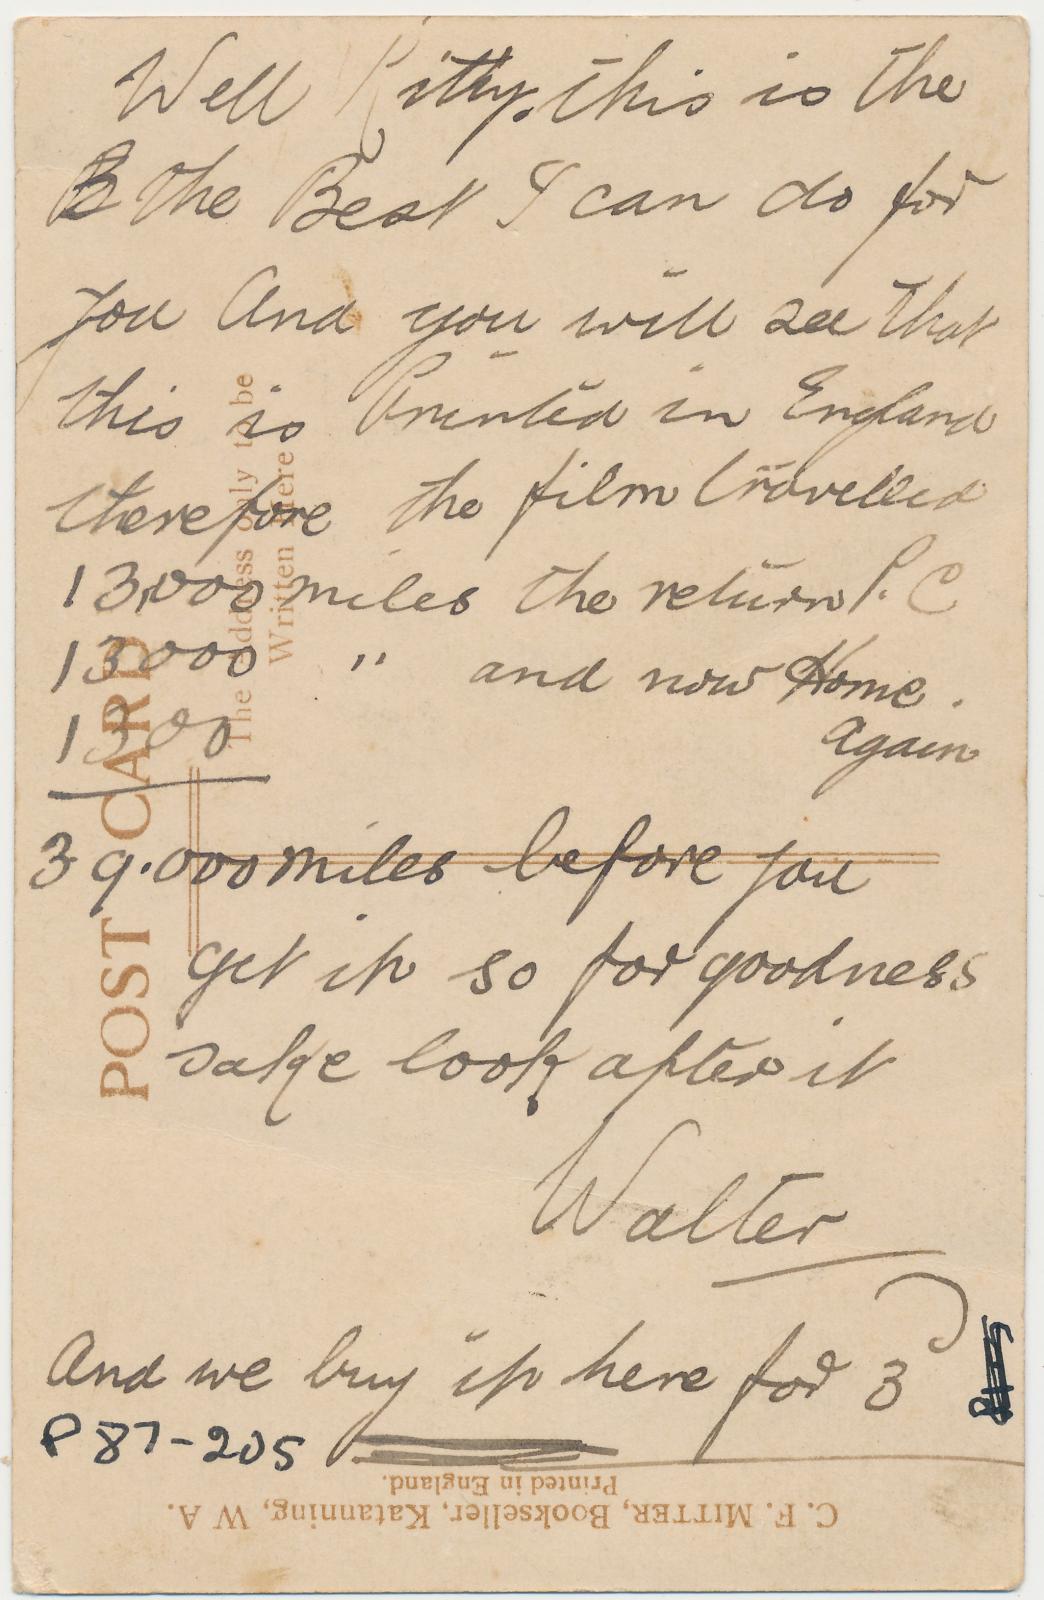 Well Kitty. this is the
B the Best I can do for
you And you will see that
this is Printed in England
therefore the film travelled
13,000 miles the return P.C
13000 " and now Home.
1300 Again
39.000 miles before you
get it so for goodness
sake look after it
Walter
And we buy it here for 3D
P87-205
POST CARD
The Address only to be
Written Here
C. F. MITTER, Bookseller, Katanning, W A.
Printed in England.